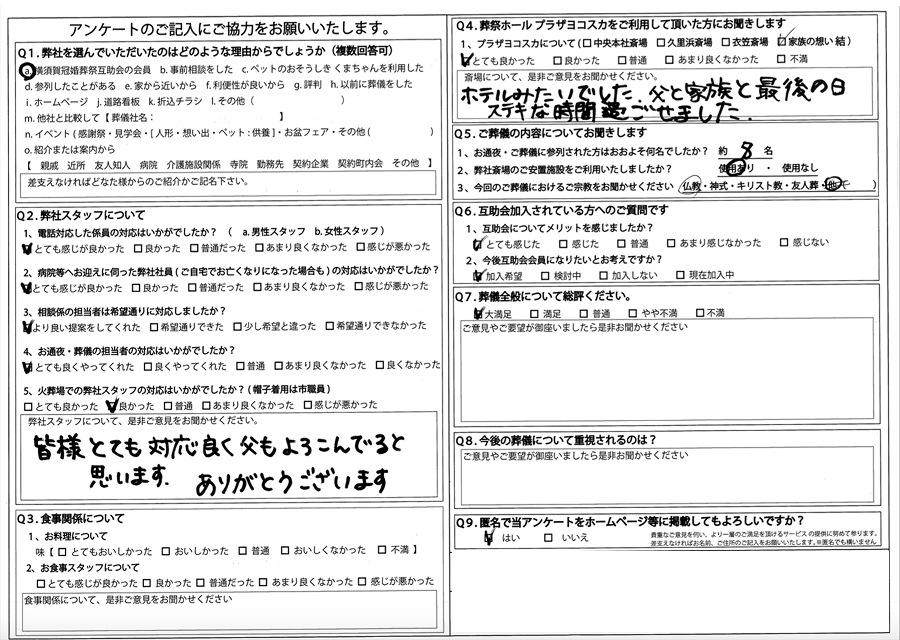 アンケートのご記入にご協力をお願いいたします。
Q1. 弊社を選んでいただいたのはどのような理由からでしょうか（複数回答可）
a. 横須賀冠婚葬祭互助会の会員　b. 事前相談をした　c. ペットのおそうしき くまちゃんを利用した
d. 参列したことがある　e. 家から近いから　f. 利便性が良いから　g. 評判　h. 以前に葬儀をした
i. ホームページ　j. 道路看板　k. 折込チラシ　l. その他（　　　）
m. 他社と比較して【 葬儀社名：　　　】
n. イベント ( 感謝祭・見学会・[ 人形・想い出・ペット : 供養 ]・お盆フェア・その他（　　　）
o. 紹介または案内から
【　親戚　近所　友人知人　病院　介護施設関係　寺院　勤務先　契約企業　契約町内会　その他　】
差支えなければどなた様からのご紹介かご記名下さい。
Q2. 弊社スタッフについて
1、電話対応した係員の対応はいかがでしたか？　（　a. 男性スタッフ　b. 女性スタッフ ）
☑とても感じが良かった　□良かった　□普通だった　□あまり良くなかった　□感じが悪かった
2、病院等へお迎えに伺った弊社社員 ( ご自宅でお亡くなりになった場合も ) の対応はいかがでしたか？
☑とても感じが良かった　□良かった　□普通だった　□あまり良くなかった　□感じが悪かった
3、相談係の担当者は希望通りに対応しましたか？
☑より良い提案をしてくれた　□希望通りできた　□少し希望と違った　□希望通りできなかった
4、お通夜・葬儀の担当者の対応はいかがでしたか？
☑とても良くやってくれた　□良くやってくれた　□普通　□あまり良くなかった　□良くなかった
5、火葬場での弊社スタッフの対応はいかがでしたか？ ( 帽子着用は市職員 )
□とても良かった　☑良かった　□普通　□あまり良くなかった　□感じが悪かった
弊社スタッフについて、是非ご意見をお聞かせください。
皆様とても対応良く父もよろこんでると
思います。ありがとうございます
Q3. 食事関係について
1、お料理について
味【 □ とてもおいしかった　□ おいしかった　□ 普通　□ おいしくなかった　□ 不満 】
2、お食事スタッフについて
□とても感じが良かった　□良かった　□普通だった　□あまり良くなかった　□感じが悪かった
食事関係について、是非ご意見をお聞かせください
Q4. 葬祭ホール プラザヨコスカをご利用して頂いた方にお聞きします
1、プラザヨコスカについて ( □中央本社斎場　□久里浜斎場　□衣笠斎場　☑家族の想い 結 )
☑とても良かった　□良かった　□普通　□あまり良くなかった　□不満
斎場について、是非ご意見をお聞かせください。
ホテルみたいでした。父と家族と最後の日
ステキな時間過ごせました。
Q5. ご葬儀の内容についてお聞きします
1、お通夜・ご葬儀に参列された方はおおよそ何名でしたか？　約　8　名
2、弊社斎場のご安置施設をご利用いたしましたか？　使用あり　・　使用なし
3、今回のご葬儀におけるご宗教をお聞かせください（仏教・神式・キリスト教・友人葬・他　　）
Q6. 互助会加入されている方へのご質問です
1、互助会についてメリットを感じましたか？
☑とても感じた　□感じた　□普通　□あまり感じなかった　□感じない
2、今後互助会会員になりたいとお考えですか？
☑加入希望　□検討中　□加入しない　□現在加入中
Q7. 葬儀全般について総評ください。
☑大満足　□満足　□普通　□やや不満　□不満
ご意見やご要望が御座いましたら是非お聞かせください
Q8. 今後の葬儀について重視されるのは？
ご意見やご要望が御座いましたら是非お聞かせください
Q9. 匿名で当アンケートをホームページ等に掲載してもよろしいですか？
☑　はい　□　いいえ
貴重なご意見を伺い、より一層のご満足を頂けるサービスの提供に努めて参ります。
差支えなければお名前、ご住所のご記入をお願いいたします。※匿名でも構いません